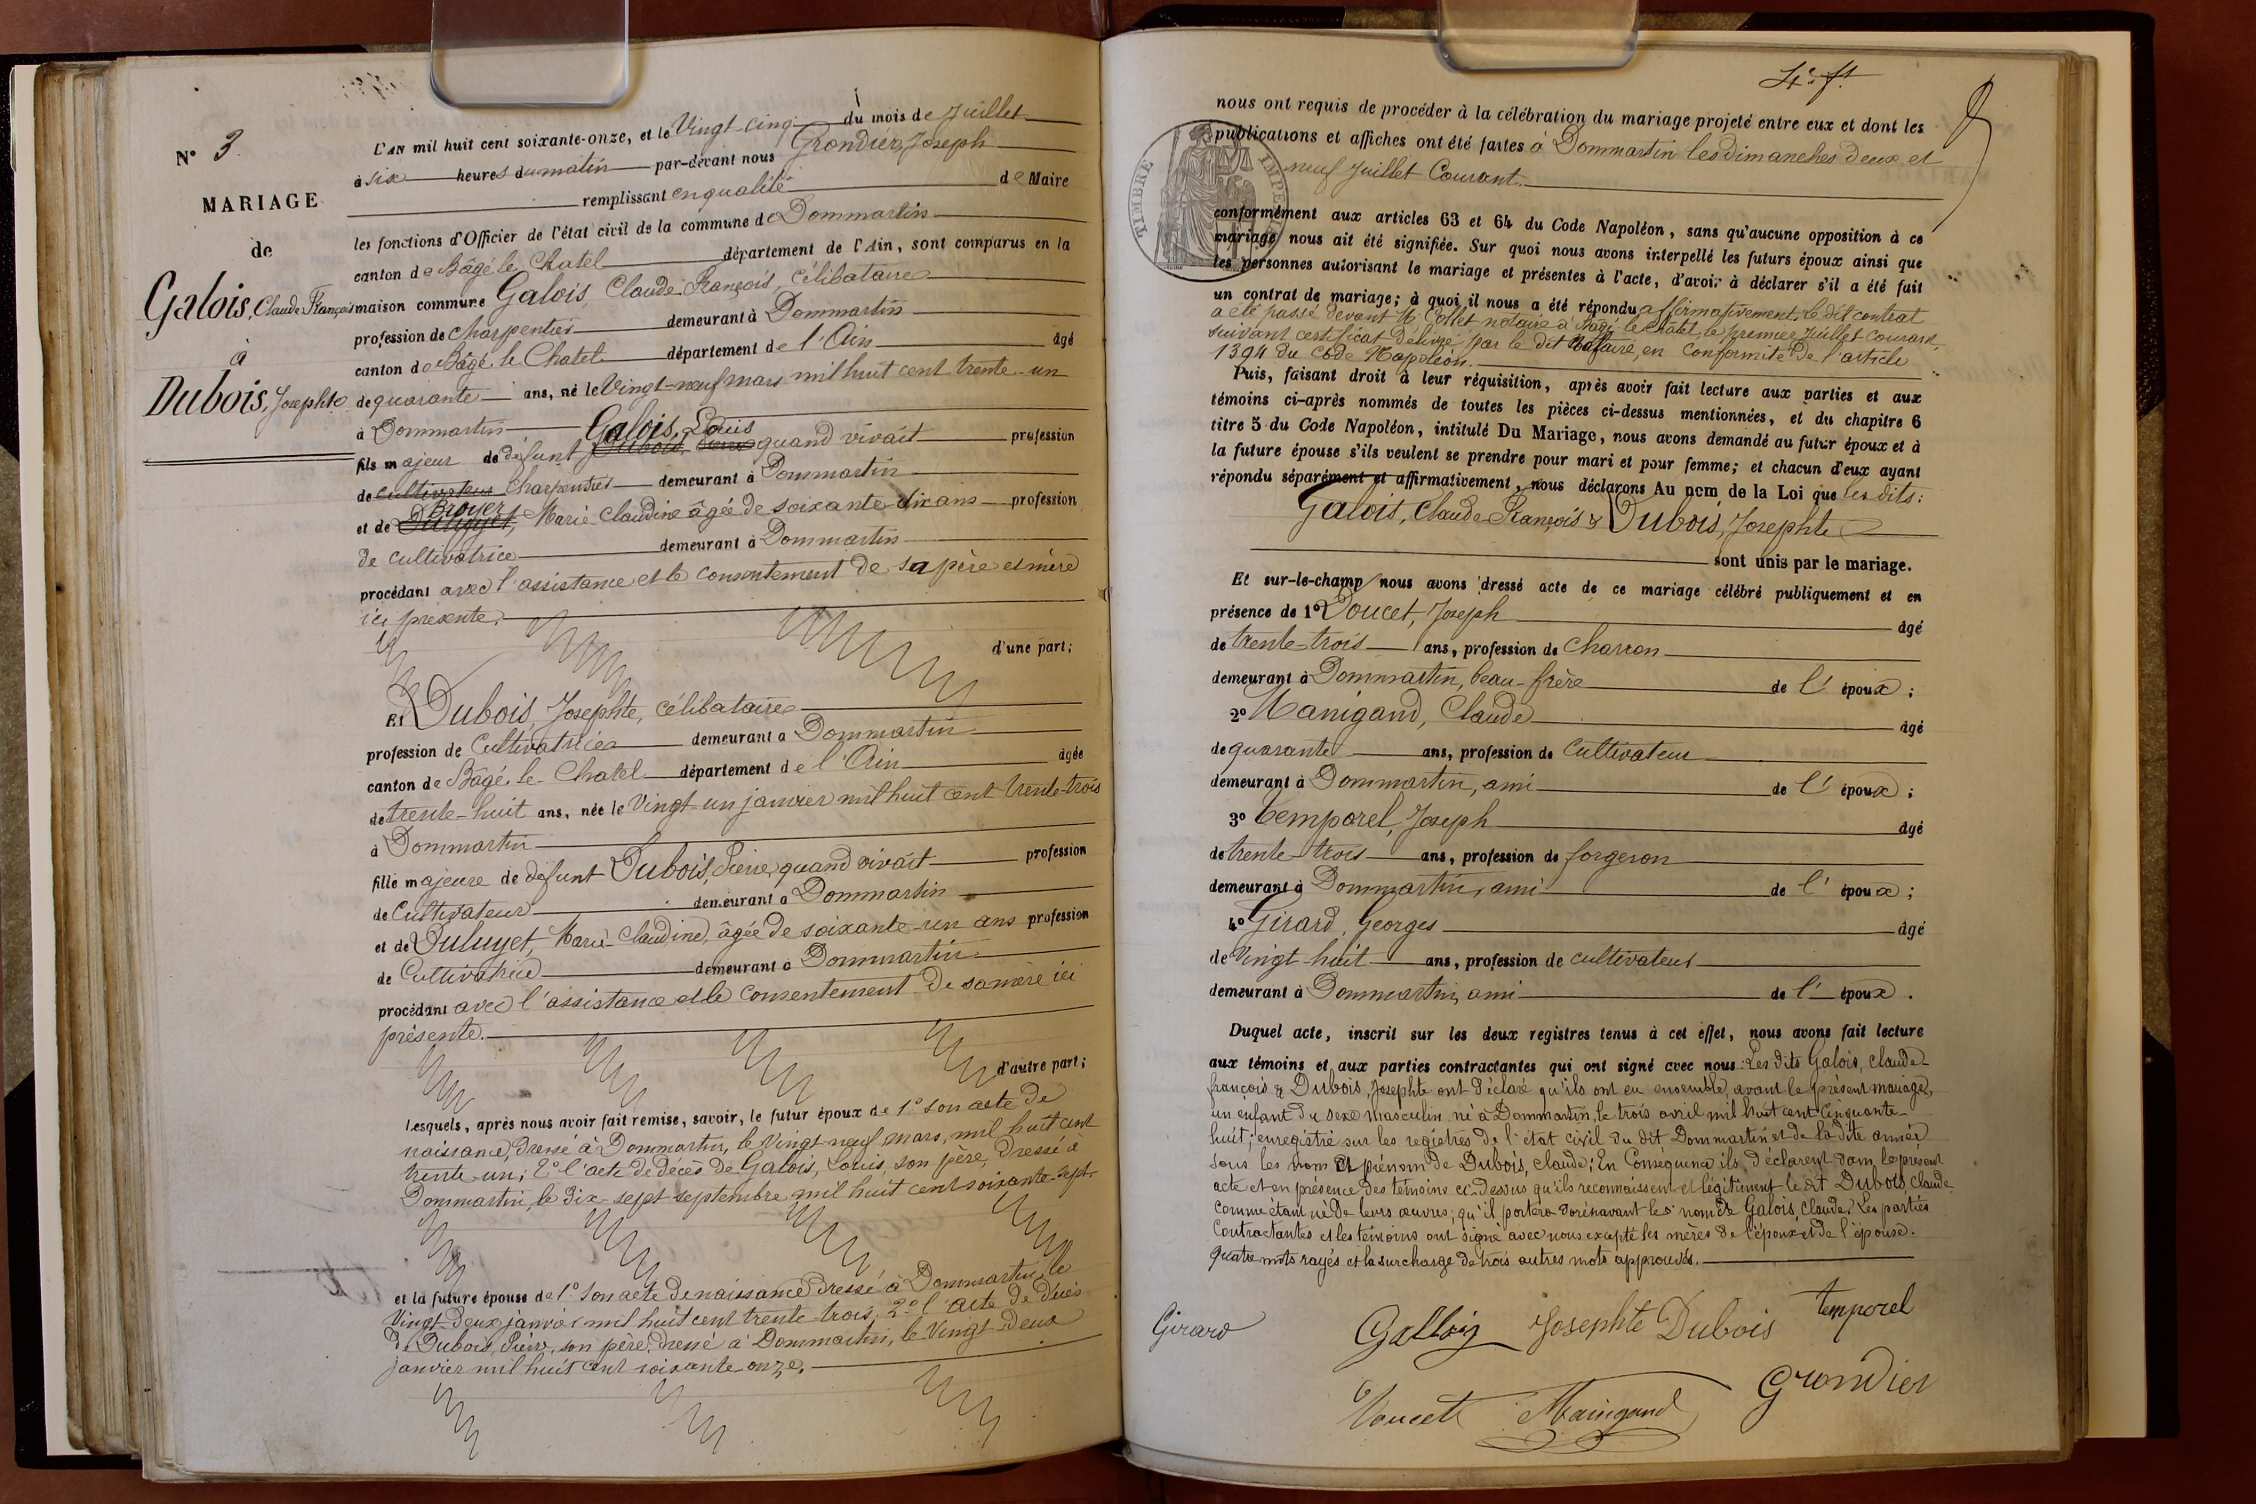 N° 3
MARIAGE
de
Galois, Claude François
à
Dubois, Josephte
L'AN mil huit cent soixante-onze, et le Vingt-cinq du mois de Juillet
à six heures du matin par-devant nous Grondier, Joseph
remplissant en qualité de Maire
les fonctions d'Officier de l'état civil de la commune de Dommartin
canton de Bâgé le Chatel département de l'Ain, sont comparus en la
maison commune Galois, Claude François, célibataire
profession de charpentier demeurant à Dommartin
canton de Bâgé le Chatel département de l'Ain âgé
de quarante ans, né le Vingt-neuf mars mil huit cent trente-un
à Dommartin
Galois, Louis
fils majeur de défunt Dubois, quand vivait profession
de cultivateur charpentier demeurant à Dommartin
Broyer
et de Duluyet, Marie Claudine âgée de soixante-dix ans profession
de cultivatrice demeurant à Dommartin
procédant avec l'assistance et le consentement de sa père et mère
ici présente.
d'une part;
Et Dubois, Josephte, célibataire
profession de Cultivatrice demeurant à Dommartin
canton de Bâgé-le-Chatel département de l'Ain âgée
de trente-huit ans, née le Vingt-un janvier mil huit cent trente-trois
à Dommartin
fille majeure de défunt Dubois, Pierre, quand vivait profession
de Cultivateur demeurant à Dommartin
et de Duluyet, Marie-Claudine, âgée de soixante-un ans profession
de Cultivatrice demeurant à Dommartin
procédant avec l'assistance et le consentement de sa mère ici
présente.
d'autre part;
Lesquels, après nous avoir fait remise, savoir, le futur époux de 1° son acte de
naissance, dressé à Dommartin, le Vingt-neuf mars, mil huit cent
trente-un; 2° l'acte de décès de Galois, Louis, son père, dressé à
Dommartin, le dix-sept septembre mil huit cent soixante-sept.
et la future épouse de 1° son acte de naissance dressé à Dommartin, le
Vingt-deux janvier mil huit cent trente-trois; 2° l'acte de décès
de Dubois, Pierre, son père, dressé à Dommartin, le Vingt-deux
janvier mil huit cent soixante-onze.
4e ft
nous ont requis de procéder à la célébration du mariage projeté entre eux et dont les
publications et affiches ont été faites à Dommartin les dimanches deux et
neuf Juillet Courant.
TIMBRE IMPE
conformément aux articles 63 et 64 du Code Napoléon, sans qu'aucune opposition à ce
mariage nous ait été signifiée. Sur quoi nous avons interpellé les futurs époux ainsi que
les personnes autorisant le mariage et présentes à l'acte, d'avoir à déclarer s'il a été fait
un contrat de mariage; à quoi il nous a été répondu affirmativement, le dit contrat
a été passé devant Me Collet notaire à Bâgé-le-Châtel, le premier juillet courant,
suivant certificat délivré par le dit Notaire, en conformité de l'article
1394 du Code Napoléon.
Puis, faisant droit à leur réquisition, après avoir fait lecture aux parties et aux
témoins ci-après nommés de toutes les pièces ci-dessus mentionnées, et du chapitre 6
titre 5 du Code Napoléon, intitulé Du Mariage, nous avons demandé au futur époux et à
la future épouse s'ils veulent se prendre pour mari et pour femme; et chacun d'eux ayant
répondu séparément et affirmativement, nous déclarons Au nom de la Loi que les dits:
Galois, Claude François & Dubois, Josephte
sont unis par le mariage.
Et sur-le-champ nous avons dressé acte de ce mariage célébré publiquement et en
présence de 1° Voucet, Joseph âgé
de trente-trois ans, profession de Charron
demeurant à Dommartin, beau-frère de l'époux;
2° Manigand, Claude âgé
de quarante ans, profession de Cultivateur
demeurant à Dommartin, ami de l'époux;
3° Temporel, Joseph âgé
de trente-trois ans, profession de forgeron
demeurant à Dommartin, ami de l'époux;
4° Girard, Georges âgé
de Vingt-huit ans, profession de cultivateur
demeurant à Dommartin, ami de l'époux.
Duquel acte, inscrit sur les deux registres tenus à cet effet, nous avons fait lecture
aux témoins et aux parties contractantes qui ont signé avec nous. Les dits Galois, Claude
françois & Dubois, Josephte ont déclaré qu'ils ont eu ensemble, avant le présent mariage,
un enfant du sexe masculin né à Dommartin, le trois avril mil huit cent cinquante-
huit; enregistré sur les registres de l'état civil du dit Dommartin et de la dite année
sous les nom et prénom de Dubois, claude; En Conséquence ils déclarent dans le présent
acte et en présence des témoins ci-dessus qu'ils reconnaissent et légitiment le dit Dubois, claude
comme étant né de leurs œuvres; qu'il portera dorénavant les nom de Galois, claude. Les parties
Contractantes et les témoins ont signé avec nous excepté les mères de l'époux et de l'épouse.
Quatre mots rayés et la surcharge de trois autres mots approuvés.
Girard Galloiz Josephte Dubois temporel
Voucet Manigand Grondier